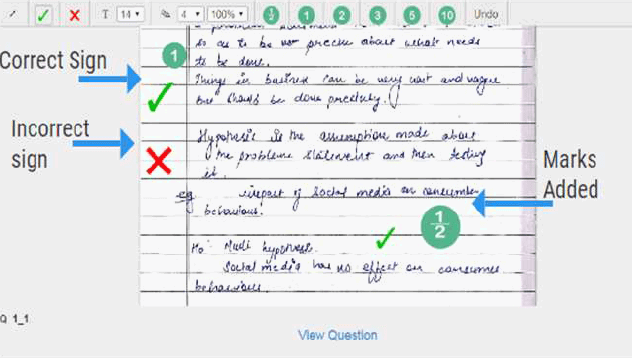 T 14 4 100% 1/2 1 2 3 5 10 Undo
so as to be not precise about what needs
to be done.
1
Correct Sign
Things in business can be very vast and vague
but should be done precisely.
Incorrect
sign
Hypothesis is the assumption made about
the problem statement and then testing
it.
Marks
Added
eg impact of social media on consumer
behaviour.
1/2
Ho: Null hypothesis.
Social media has no effect on consumer
behaviour.
Q 1_1
View Question